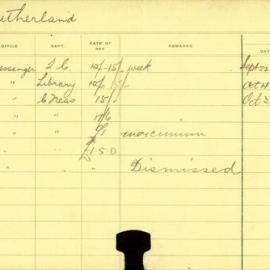 utherland
OFFICE DEPT. RATE OF PAY REMARKS DAT
essenger T.C. 10/- 15/- week Sept 22
" Library 10/- Oct 4
" C Treas 15/- Oct 2
" " 17/6
" " £1 maximum "
" " £150
" " Dismissed